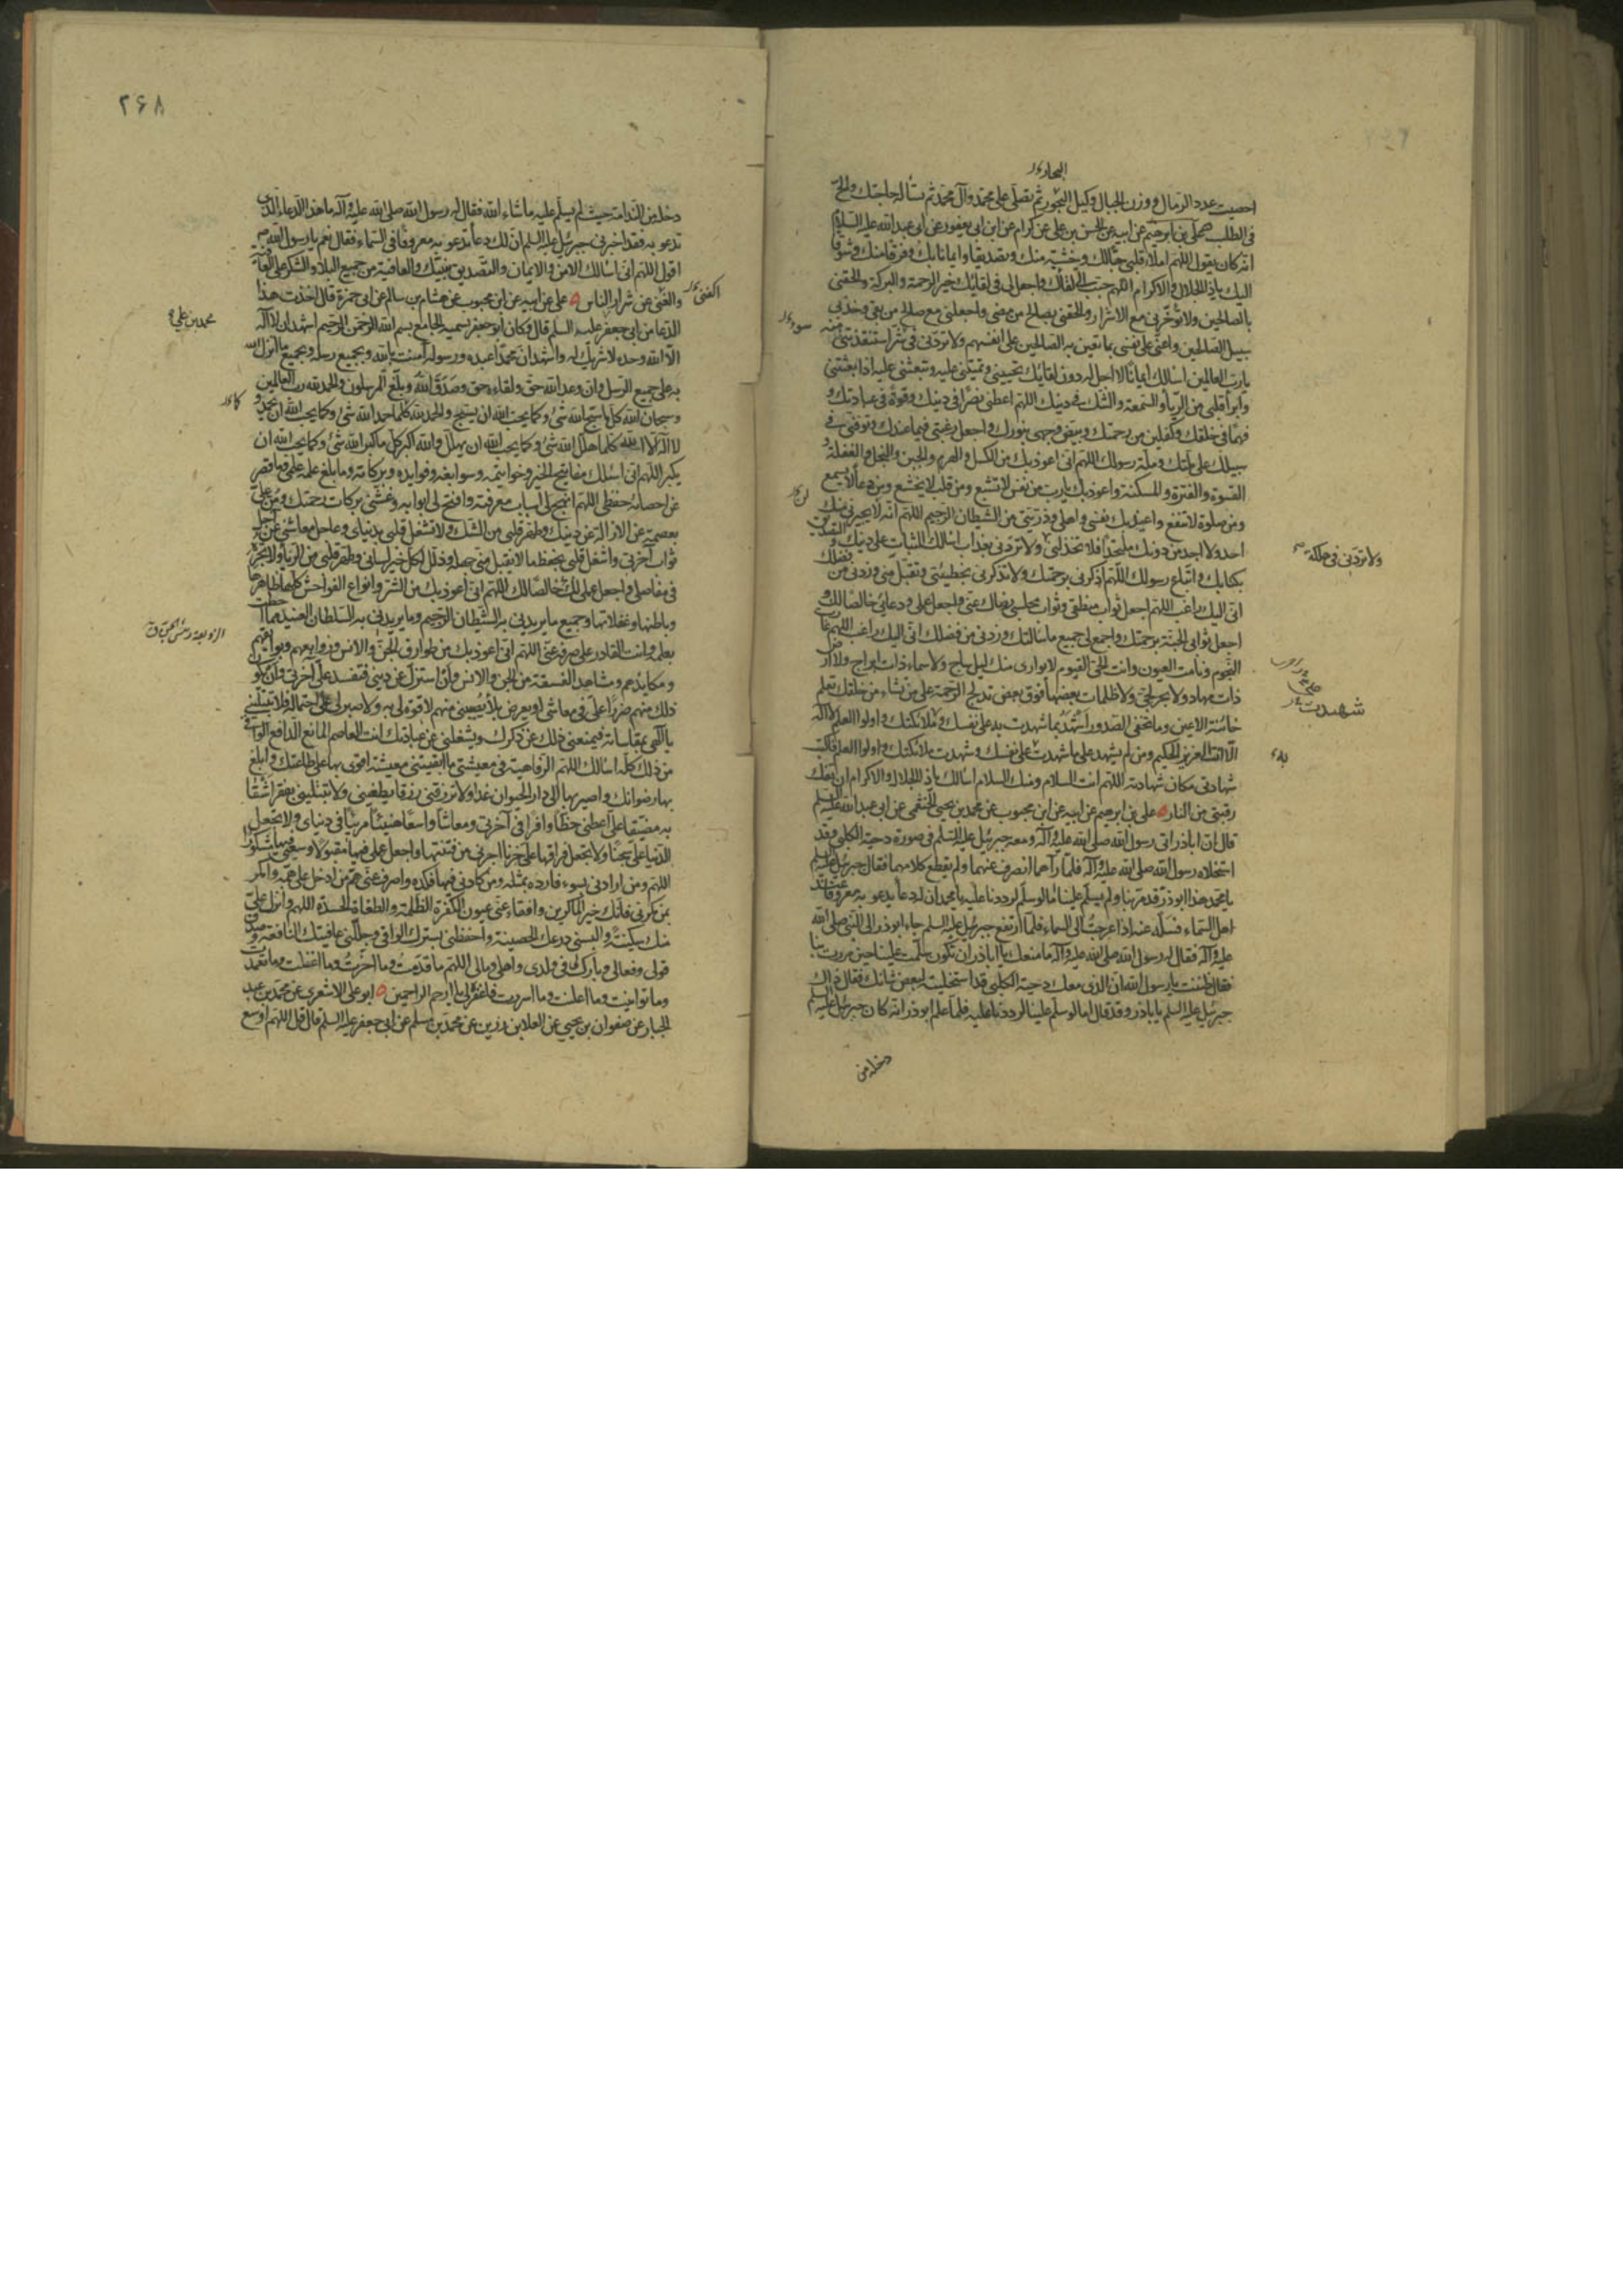 البحار
احصيت عدد الرمال ووزن الجبال وكيل البحور ثم تصلى على محمد وآل محمد ثم تسأله حاجتك والح
فى الطلب علي بن ابرهيم عن ابيه عن الحسن بن على عن كرام عن ابن ابى يعفور عن ابى عبد الله عليه السلام
انه كان يقول اللهم املأ قلبى حبا لك وخشية منك وتصديقا وايمانا بك وفرقا منك وشوقا
اليك ياذا الجلال والاكرام اللهم حبب الى لقاك واجعل لى فى لقائك خير الرحمة والبركة والحقنى
بالصالحين ولا تؤخرنى مع الاشرار والحقنى بصالح من مضى واجعلنى مع صالح من بقى وخذ بى
سبيل الصالحين واعنى على نفسى بما تعين به الصالحين على انفسهم ولا تردنى فى شر استنقذتنى منه
يا رب العالمين اسالك ايمانا لا اجل له دون لقائك تحيينى وتميتنى عليه وتبعثنى عليه اذا بعثتنى
وابرأ قلبى من الرياء والسمعة والشك فى دينك اللهم اعطنى نصرا فى دينك وقوة فى عبادتك و
فهما فى خلقك وكفلين من رحمتك وبيض وجهى بنورك واجعل رغبتى فيما عندك وتوفنى فى
سبيلك على ملتك وملة رسولك اللهم انى اعوذ بك من الكسل والهرم والجبن والبخل والغفلة و
القسوة والفترة والمسكنة واعوذ بك يا رب من نفس لا تشبع ومن قلب لا يخشع ومن دعاء لا يسمع
ومن صلوة لا تنفع واعيذ بك نفسى واهلى وذريتى من الشيطان الرجيم اللهم انه لا يجيرنى منك
احد ولا اجد من دونك ملتحدا فلا تخذلنى ولا تردنى بعذاب اسالك الثبات على دينك و التصديق
بكتابك واتباع رسولك اللهم اذكرنى برحمتك ولا تذكرنى بخطيئتى وتقبل منى وزدنى من فضلك
انى اليك راغب اللهم اجعل ثواب منطقى وثواب مجلسى رضاك عنى واجعل عملى ودعائى خالصا لك و
اجعل ثوابى الجنة برحمتك واجمع لى جميع ما سالتك وزدنى من فضلك انى اليك راغب اللهم غارت
النجوم ونامت العيون وانت الحى القيوم لا يوارى منك ليل ساج ولا سماء ذات ابراج ولا ارض
ذات مهاد ولا بحر لجى ولا ظلمات بعضها فوق بعض تدلج الرحمة على من تشاء من خلقك تعلم
خائنة الاعين وما تخفى الصدور اشهد بما شهدت به على نفسك وملائكتك واولوا العلم لا اله
الا انت العزيز الحكيم ومن لم يشهد على ما شهدت على نفسك وشهدت ملائكتك واولوا العلم فاكتب
شهادتى مكان شهادته اللهم انت السلام ومنك السلام اسالك ياذا الجلال والاكرام ان تفك
رقبتى من النار ه على بن ابرهيم عن ابيه عن ابن محبوب عن محمد بن يحيى الخثعمى عن ابى عبد الله عليه السلم
قال ان اباذر اتى رسول الله صلى الله عليه وآله ومعه جبرئيل عليه السلم فى صورة دحية الكلبى وقد
استخلاه رسول الله صلى الله عليه وآله فلما رآهما انصرف عنهما ولم يقطع كلامهما فقال جبرئيل عليه السلم
يا محمد هذا ابوذر قد مر بنا ولم يسلم علينا اما لو سلم لرددنا عليه يا محمد ان له دعاء يدعو به معروفا عند
اهل السماء فسله عنه اذا عرجت الى السماء فلما ارتفع جبرئيل عليه السلم جاء ابوذر الى النبى صلى الله
عليه وآله فقال له رسول الله صلى الله عليه وآله ما منعك يا اباذر ان تكون سلمت علينا حين مررت بنا
فقال ظننت يا رسول الله ان الذى معك دحية الكلبى قد استخليته لبعض شانك فقال ذاك
جبرئيل عليه السلم يا اباذر وقد قال اما لو سلم علينا لرددنا عليه فلما علم ابوذر انه كان جبرئيل عليه السلم
دخله من
ولا تردنى فى هلكة
شهدت
٢۶٨
دخله من الندامة حيث لم يسلم عليه ما شاء الله فقال له رسول الله صلى الله عليه وآله ما هذا الدعاء الذى
تدعو به فقد اخبرنى جبرئيل عليه السلم ان لك دعاء تدعو به معروفا فى السماء فقال نعم يا رسول الله
اقول اللهم انى اسالك الامن والايمان والتصديق بنبيك والعافية من جميع البلاء والشكر على العافية
والغنى عن شرار الناس ه على عن ابيه عن ابن محبوب عن هشام بن سالم عن ابى حمزة قال اخذت هذا
الدعاء من ابى جعفر عليه السلم قال وكان ابو جعفر يسميه الجامع بسم الله الرحمن الرحيم اشهد ان لا اله
الا الله وحده لا شريك له واشهد ان محمدا عبده ورسوله آمنت بالله وبجميع رسله وبجميع ما انزل
به على جميع الرسل وان وعد الله حق ولقاءه حق وصدق الله وبلغ المرسلون والحمد لله رب العالمين
وسبحان الله كلما سبح الله شئ وكما يحب الله ان يسبح والحمد لله كلما حمد الله شئ وكما يحب الله ان يحمد و
لا اله الا الله كلما هلل الله شئ وكما يحب الله ان يهلل والله اكبر كل ما كبر الله شئ وكما يحب الله ان
يكبر اللهم انى اسئلك مفاتيح الخير وخواتيمه وسوابغه وفوايده وبركاته وما بلغ علمه علمى وما قصر
عن احصائه حفظى اللهم انهج لى اسباب معرفته وافتح لى ابوابه وغشنى بركات رحمتك ومن على
بعصمة عن الازالة عن دينك وطهر قلبى من الشك ولا تشغل قلبى بدنياى وعاجل معاشى عن آجل
ثواب آخرتى واشغل قلبى بحفظ ما لا يقبل منى جهله وذلل لكل خير لسانى وطهر قلبى من الرياء ولا تجره
فى مفاصلى واجعل عملى لك خالصا لك اللهم انى اعوذ بك من الشر وانواع الفواحش كلها ظاهرها
وباطنها وغفلاتها وجميع ما يريدنى به الشيطان الرجيم وما يريدنى به السلطان العنيد مما احطت
بعلمه وانت القادر على صرفه عنى اللهم انى اعوذ بك من طوارق الجن والانس وزوابعهم وبوائقهم
ومكايدهم ومشاهد الفسقة من الجن والانس وان استزل عن دينى فتفسد على آخرتى وان يكون
ذلك منهم ضررا على فى معاشى او يعرض بلاء يصيبنى منهم لا قوة لى به ولا صبر لى على احتماله فلا تبتلنى
يا الهى بمقاساته فيمنعنى ذلك عن ذكرك ويشغلنى عن عبادتك انت العاصم المانع الدافع الواقى
من ذلك كله اسالك اللهم الرفاهية فى معيشتى ما ابقيتنى معيشة اقوى بها على طاعتك وابلغ
بها رضوانك واصير بها الى دار الحيوان غدا ولا ترزقنى رزقا يطغينى ولا تبتلينى بفقر اشقى
به مضيقا على اعطنى حظا وافرا فى آخرتى ومعاشا واسعا هنيئا مريئا فى دنياى ولا تجعل
الدنيا على سجنا ولا تجعل فراقها على حزنا اجرنى من فتنتها واجعل عملى فيها مقبولا وسعيى فيها مشكورا
اللهم ومن ارادنى بسوء فارده بمثله ومن كادنى فيها فكده واصرف عنى هم من ادخل على همه وامكر
بمن مكر بى فانك خير الماكرين وافقاء عنى عيون الكفرة الظلمة والطغاة الحسدة اللهم وانزل على
منك سكينة والبسنى درعك الحصينة واحفظنى بسترك الواقى وجللنى عافيتك النافعة وصدق
قولى وفعالى وبارك لى فى ولدى واهلى ومالى اللهم ما قدمت وما اخرت وما اغفلت وما تعمدت
وما توانيت وما اعلنت وما اسررت فاغفره لى يا ارحم الراحمين ه ابو على الاشعرى عن محمد بن عبد
الجبار عن صفوان بن يحيى عن العلا بن رزين عن محمد بن مسلم عن ابى جعفر عليه السلم قال قل اللهم اوسع
اكفنى
محمد بن على